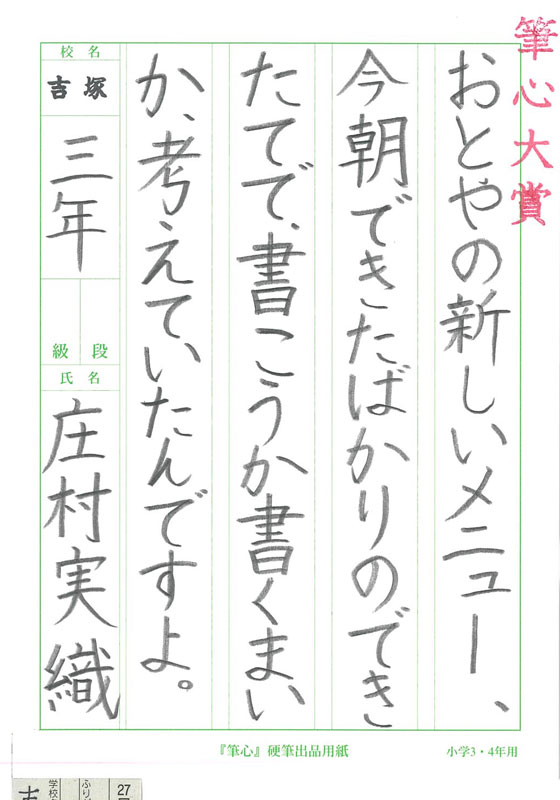 筆心大賞
おとやの新しいメニュー、
今朝できたばかりのでき
たてで、書こうか書くまい
か、考えていたんですよ。
校名
吉塚
三年
段
級
氏名
庄村実織
『筆心』硬筆出品用紙
小学3・4年用
27
学校
ふり